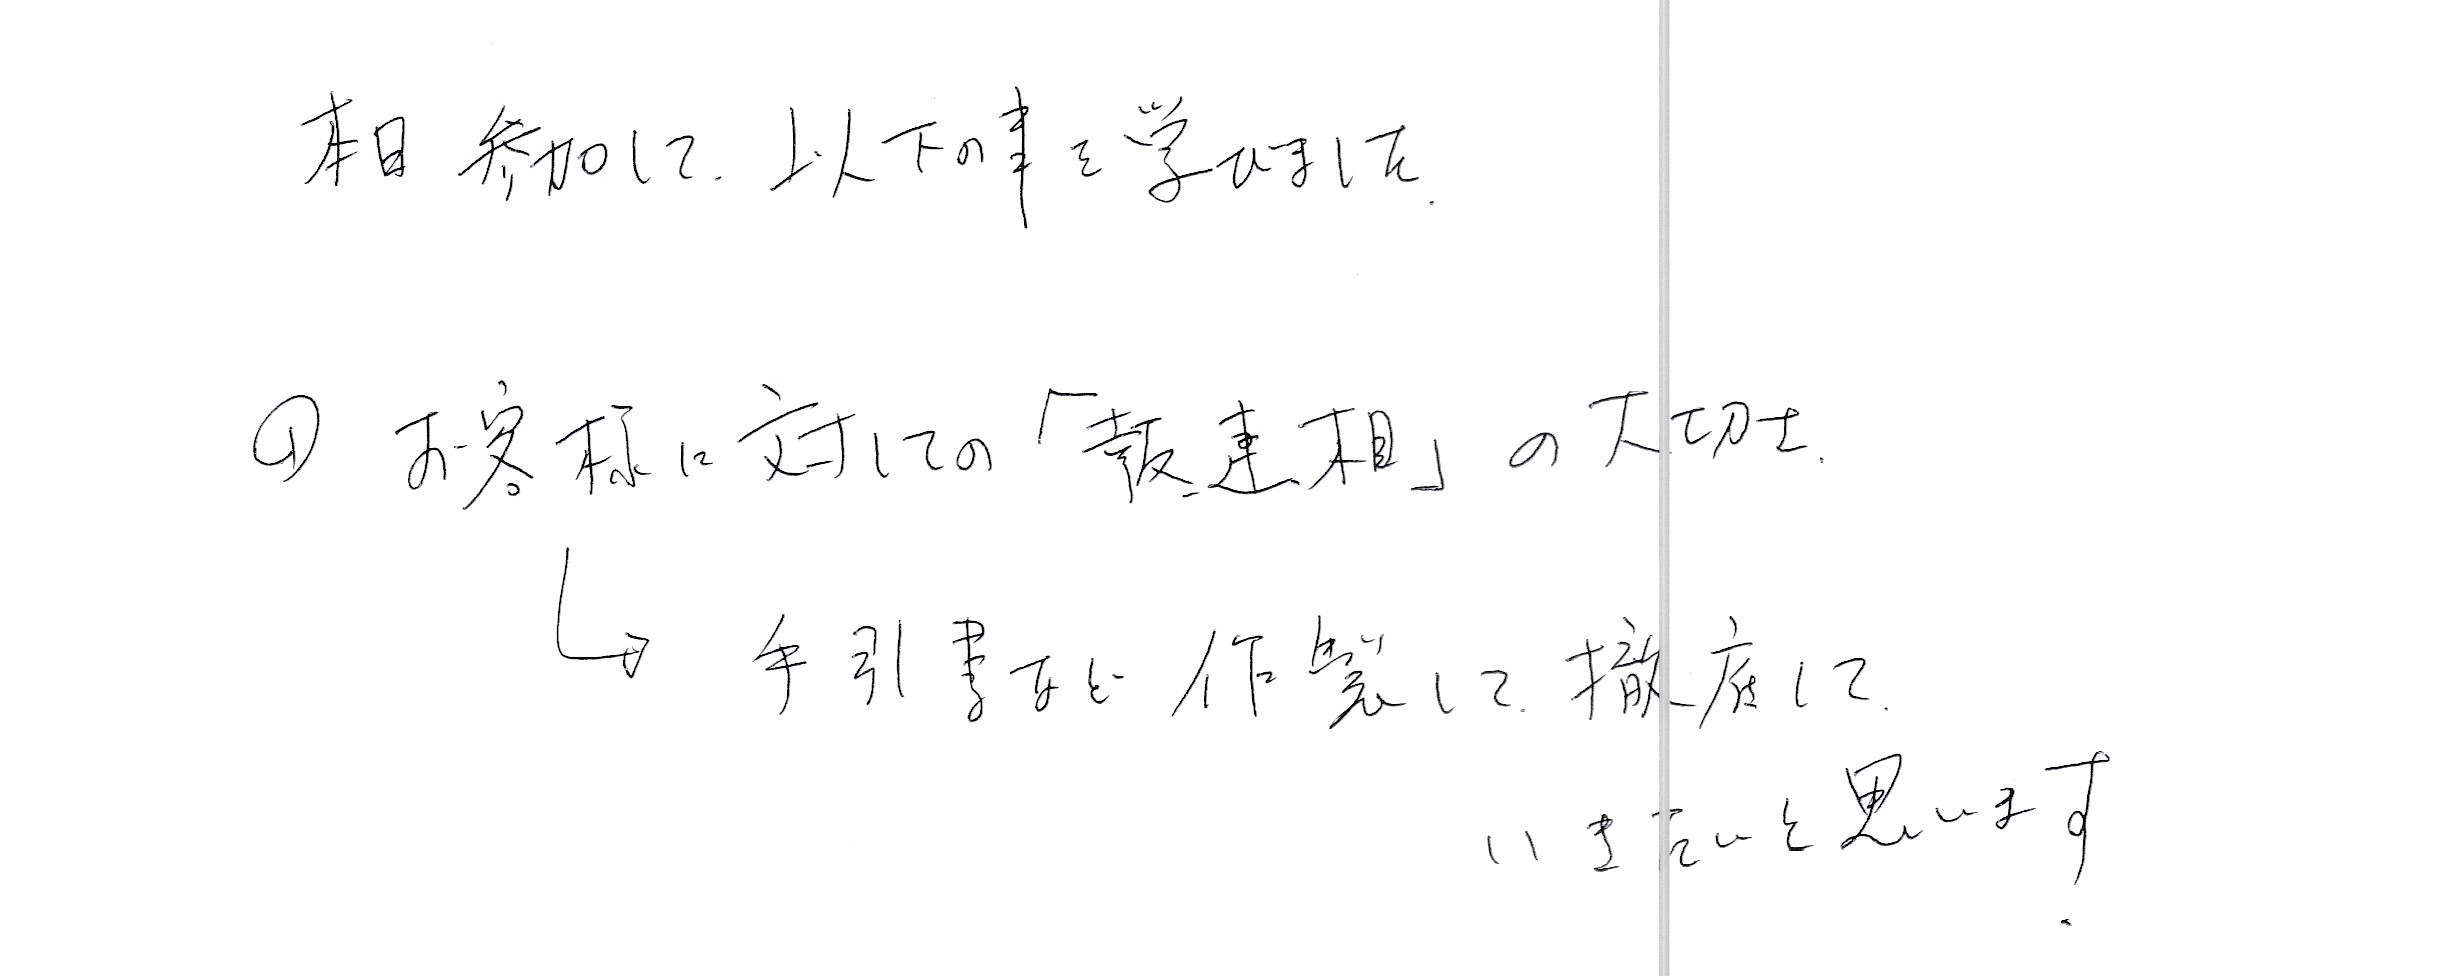 本日参加して、以下の事を学びました。
① お客様に対しての「報、連、相」の大切さ。
↳ 手引書など作製して、徹底して、
いきたいと思います。